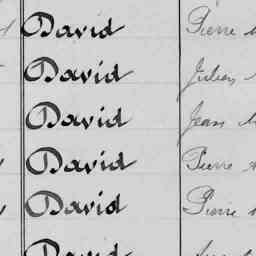 David Pierre
David Julien
David Jean
David Pierre
David Pierre
David